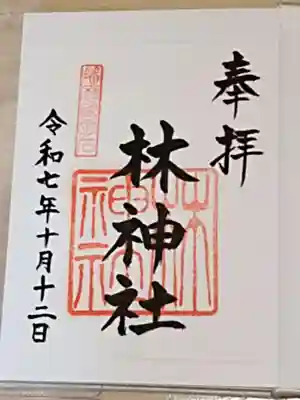 奉拝
林神社
令和七年十月十二日